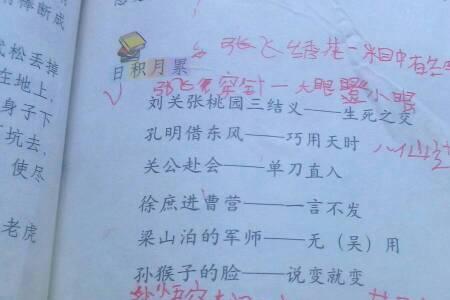 棒断成
松丢掉
在地上，
身子下
坑去，
使尽
老虎
张飞绣花一粗中有
日积月累
张飞穿针一大眼瞪小眼
刘关张桃园三结义——生死之交
孔明借东风——巧用天时
八仙
关公赴会——单刀直入
徐庶进曹营——一言不发
梁山泊的军师——无（吴）用
孙猴子的脸——说变就变
孙悟空